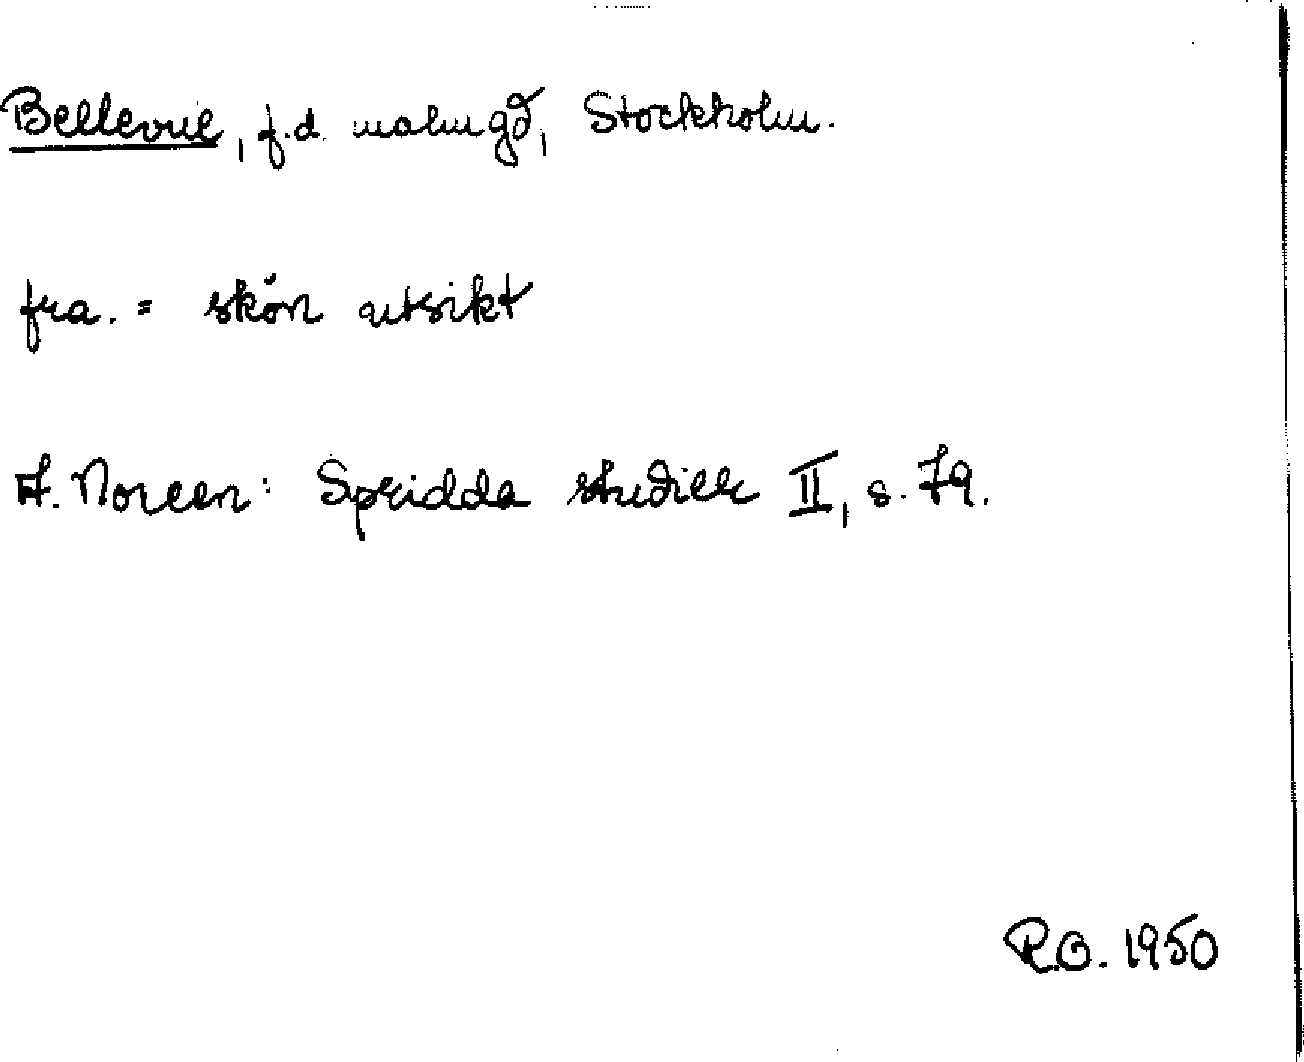 Bellevue, f.d. malmgd, Stockholm.
fra. = skön utsikt
A. Noreen: Spridda studier II, s. 79.
R.O. 1950